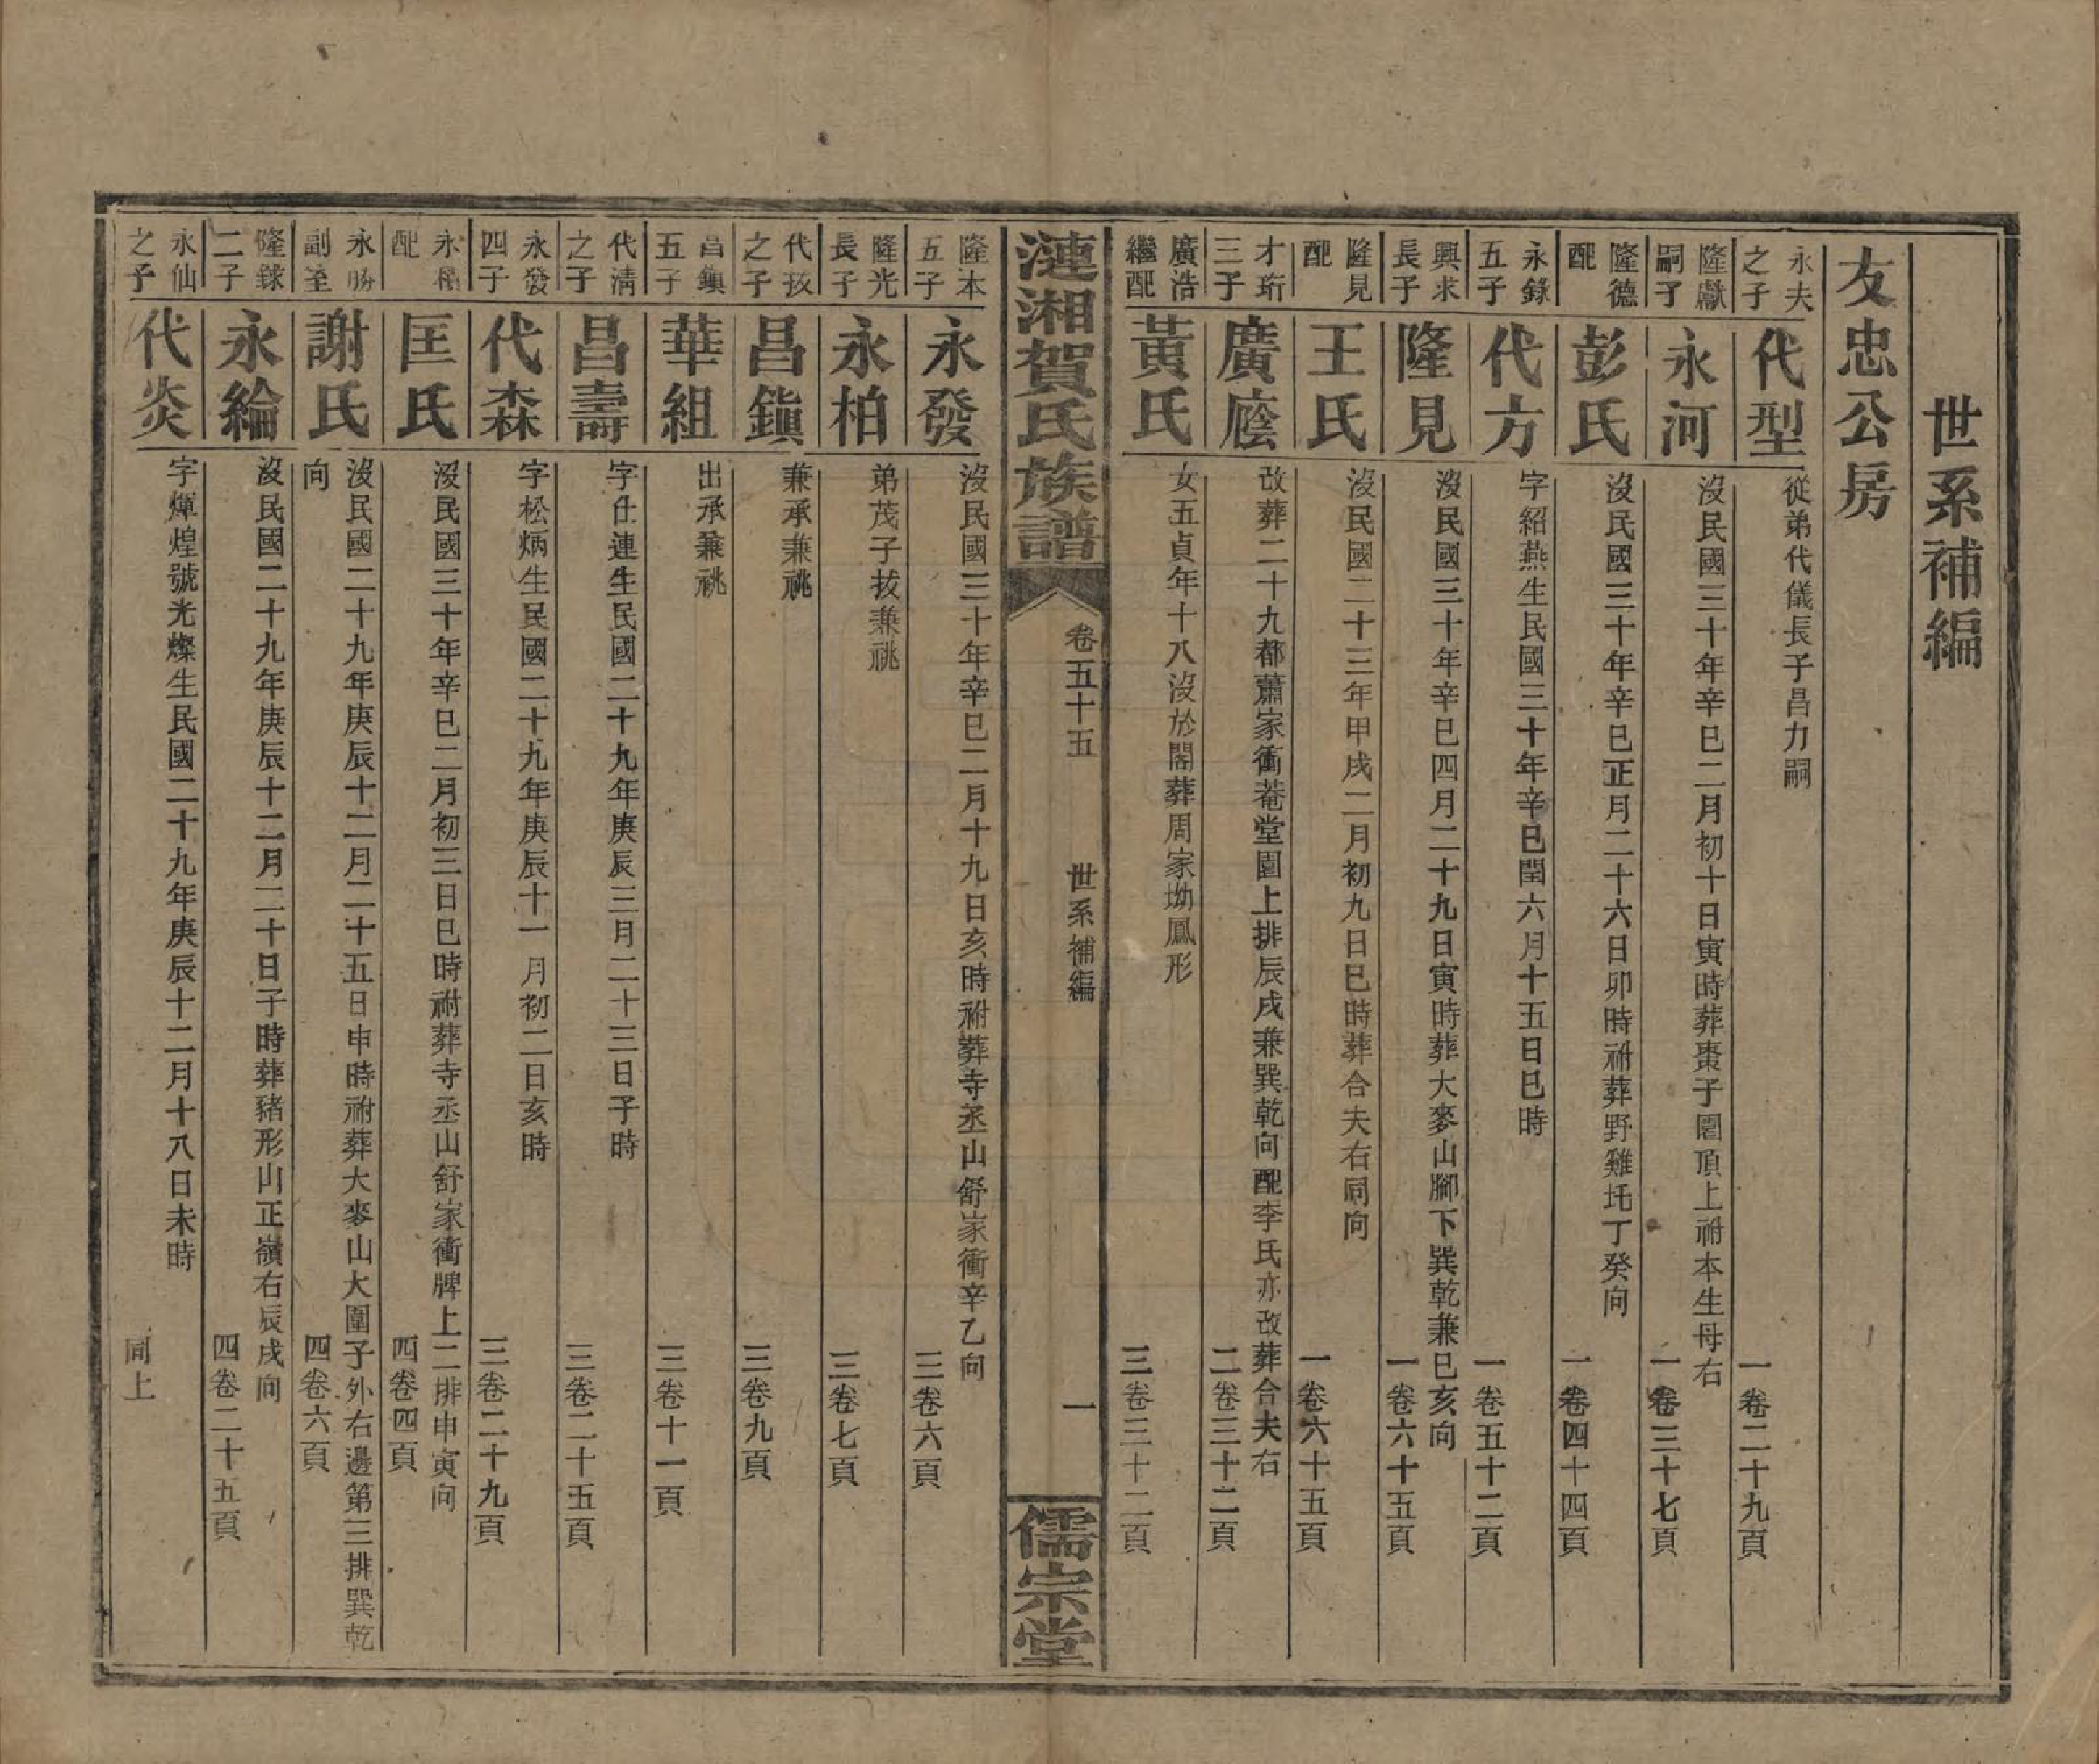 世系補編
友忠公房
永夫之子
代型
從弟代儀長子昌力嗣
一卷二十九頁
隆獻嗣子
永河
沒民國三十年辛巳二月初十日寅時葬棗子園頂上祔本生母右
一卷三十七頁
隆德配
彭氏
沒民國三十年辛巳正月二十六日卯時祔葬野雞圫丁癸向
一卷四十四頁
永錄五子
代方
字紹燕生民國三十年辛巳閏六月十五日巳時
一卷五十二頁
興求長子
隆見
沒民國三十年辛巳四月二十九日寅時葬大麥山腳下巽乾兼巳亥向
一卷六十五頁
隆見配
王氏
沒民國二十三年甲戌二月初九日巳時葬合夫右同向
一卷六十五頁
才珩三子
廣廕
改葬二十九都蕭家衝菴堂園上排辰戌兼巽乾向配李氏亦改葬合夫右
二卷三十二頁
廣浩繼配
黃氏
女五貞年十八沒於閣葬周家坳鳳形
三卷三十二頁
漣湘賀氏族譜
卷五十五
世系補編
一
儒宗堂
隆本五子
永發
沒民國三十年辛巳二月十九日亥時祔葬寺丞山舒家衝辛乙向
三卷六頁
隆光長子
永柏
弟茂子拔兼祧
三卷七頁
代孩之子
昌鎮
兼承兼祧
三卷九頁
昌鎮五子
華組
出承兼祧
三卷十一頁
代清之子
昌壽
字仕連生民國二十九年庚辰三月二十三日子時
三卷二十五頁
永發四子
代森
字松炳生民國二十九年庚辰十一月初二日亥時
三卷二十九頁
永配
匡氏
沒民國三十年辛巳二月初三日巳時祔葬寺丞山舒家衝牌上二排申寅向
四卷四頁
永勝副室
謝氏
沒民國二十九年庚辰十二月二十五日申時祔葬大麥山大圍子外右邊第三排巽乾
向
四卷六頁
隆銾二子
永綸
沒民國二十九年庚辰十二月二十日子時葬豬形山正嶺右辰戌向
四卷二十五頁
永仙之子
代炎
字煇煌號光燦生民國二十九年庚辰十二月十八日未時
同上